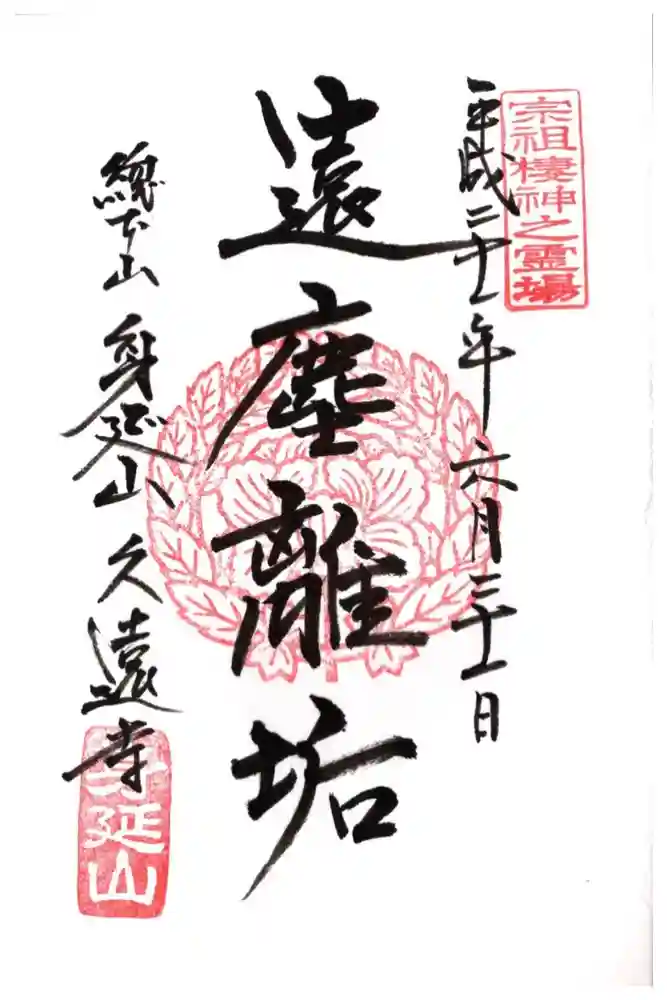 宗祖棲神之霊場
平成二十一年 六月 日
遠塵離垢
總本山 身延山 久遠寺
身延山